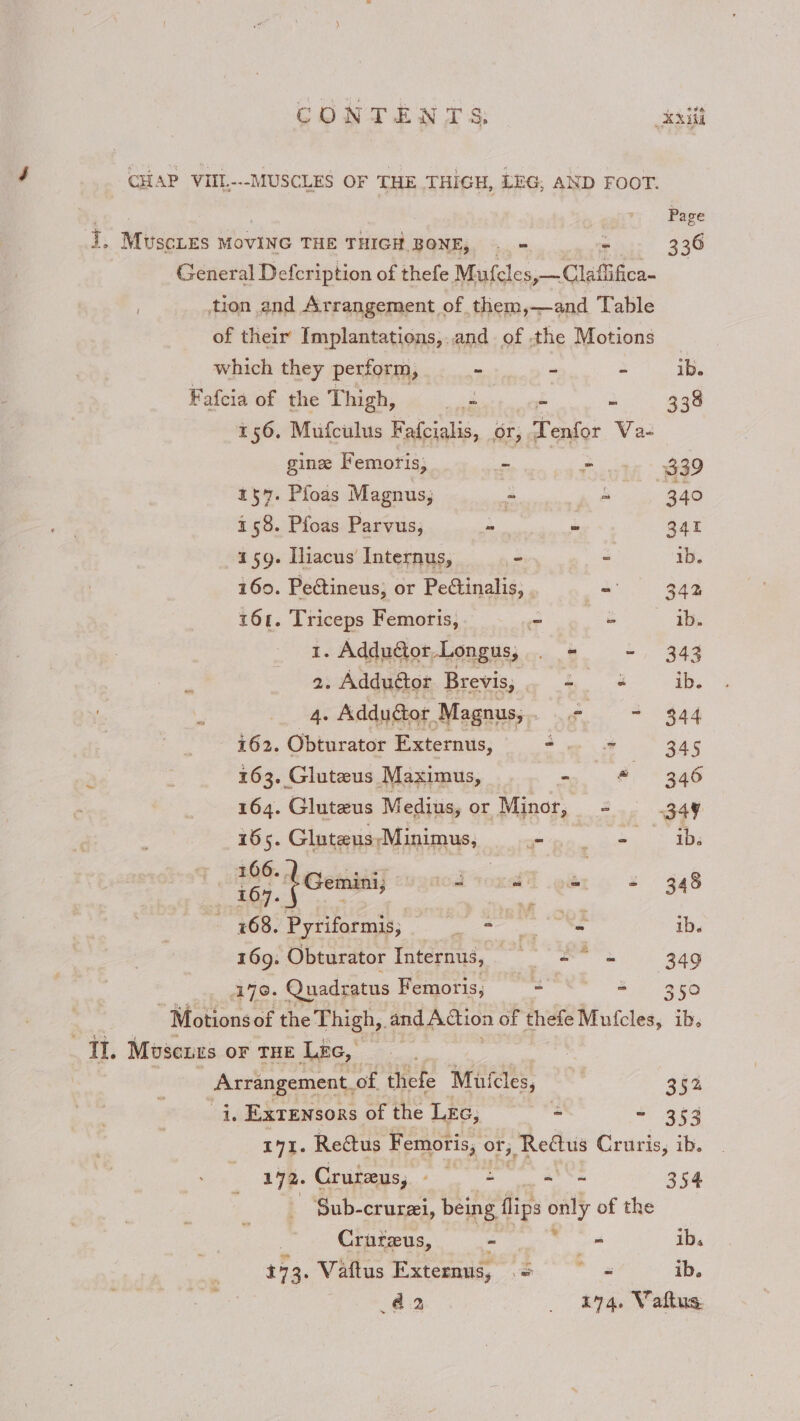 CONTENTS. xxiii
CHAP VIII.---MUSCLES OF THE THIGH, LEG, AND FOOT.
Page
I. MUSCLES MOVING THE THIGH BONE, - - 336
General Deſcription of theſe Muſcles,—Claſſifica-
tion and Arrangement of them,—and Table
of their Implantations, and of the Motions
which they perform, - - - ib.
Faſcia of the Thigh, - - - 338
156. Muſculus Faſcialis, or, Tenſor Va-
ginæ Femoris, - - 339
157. Pſoas Magnus, - - 340
158. Pſoas Parvus, - - 341
159. Iliacus Internus, - - ib.
160. Pectineus, or Pectinalis, - 342
161. Triceps Femoris, - - ib.
1. Adductor Longus, - - 343
2. Adductor Brevis, - - ib.
4. Adductor Magnus, - - 344
162. Obturator Externus, - - 345
163. Glutæus Maximus, - - 346
164. Glutæus Medius, or Minor, - 347
165. Glutæus Minimus, - - ib.
166. }
167. } Gemini, - - - - 348
168. Pyriformis, - - ib.
169. Obturator Internus, - - 349
170. Quadratus Femoris, - - 350
Motions of the Thigh, and Action of theſe Muſcles, ib.
II. MUSCLES OF THE LEG,
Arrangement of theſe Muſcles, 352
i. EXTENSORS of the LEG, - - 353
171. Rectus Femoris, or, Rectus Cruris, ib.
172. Cruræus, - - - 354
Sub-cruræi, being ſlips only of the
Cruræus, - - ib.
173. Vaſtus Externus, - - ib.
d 2 174. Vaſtus